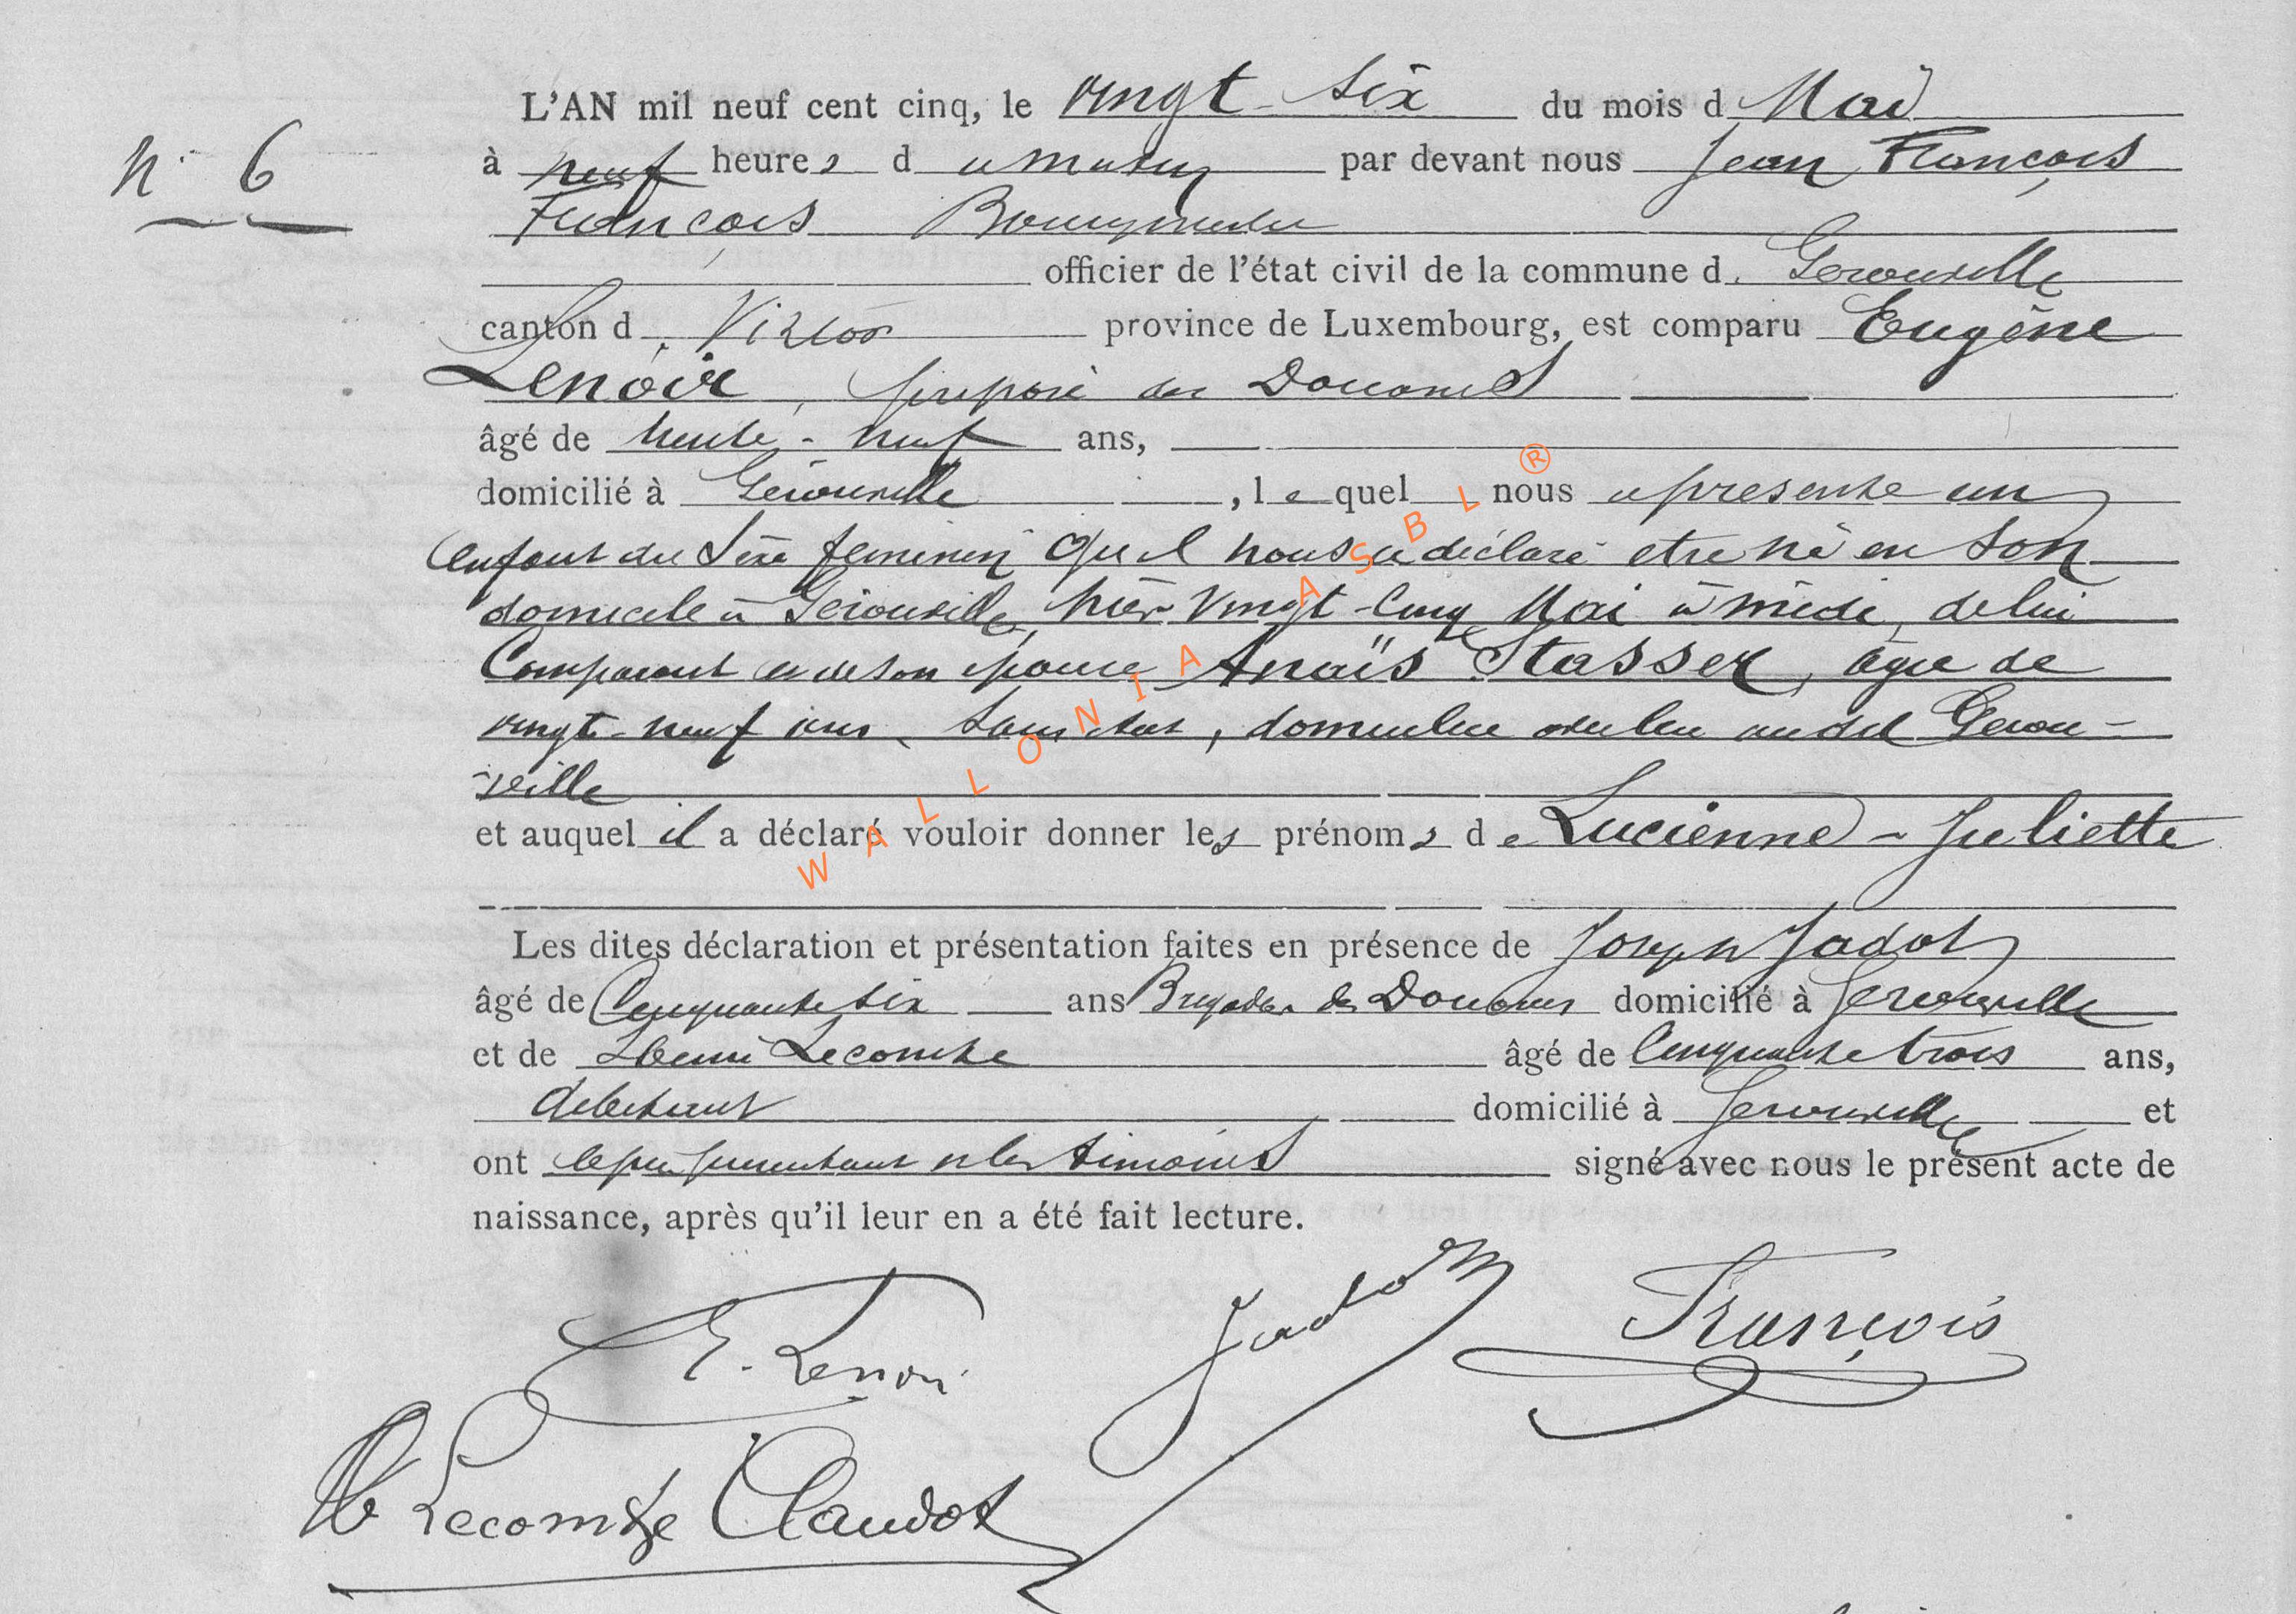 N° 6
L'AN mil neuf cent cinq, le vingt-six du mois d Mai
à neuf heures d u matin par devant nous Jean François
François Bourgmestre
officier de l'état civil de la commune d. Gérouville
canton d. Virton province de Luxembourg, est comparu Eugène
Lenoir, préposé des Douanes
âgé de trente-neuf ans,
domicilié à Gérouville, l e quel nous a présenté un
enfant du sexe féminin qu'il nous a déclaré etre né en son
domicile à Gérouville, hier vingt-cinq Mai à midi, de lui
Comparant et de son épouse Anaïs Stasser, âgée de
vingt-neuf ans, sans état, domiciliée au dit Gérou-
-ville
et auquel il a déclaré vouloir donner les prénoms d e Lucienne-Juliette
Les dites déclaration et présentation faites en présence de Joseph Jadot
âgé de Cinquante six ans Brigadier des Douanes domicilié à Gérouville
et de Henri Lecomte âgé de Cinquante trois ans,
débitant domicilié à Gérouville et
ont le père présentant et les témoins signé avec nous le présent acte de
naissance, après qu'il leur en a été fait lecture.
E. Lenoir Jadot François
H Lecomte Claudot
WALLONIA ASBL ®